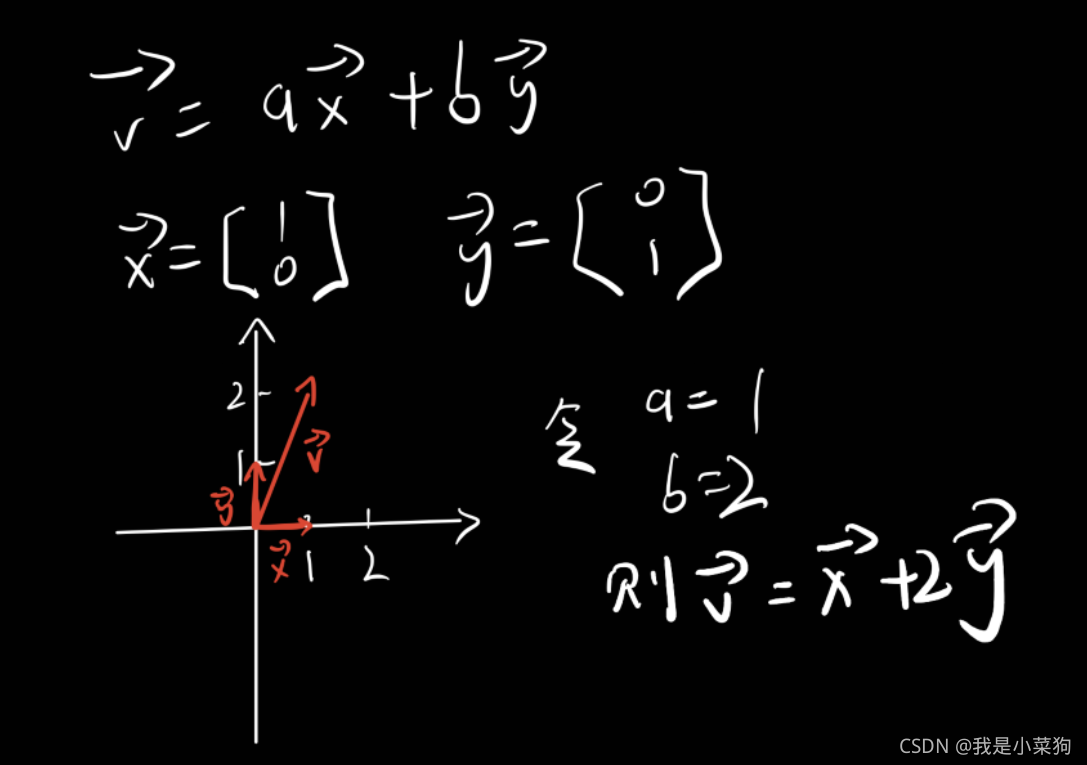 v⃗ = ax⃗ + by⃗
x⃗ = [1 0] y⃗ = [0 1]
2
1
y⃗
v⃗
x⃗ 1 2
令 a = 1
b = 2
则 v⃗ = x⃗ + 2y⃗
CSDN @我是小菜狗